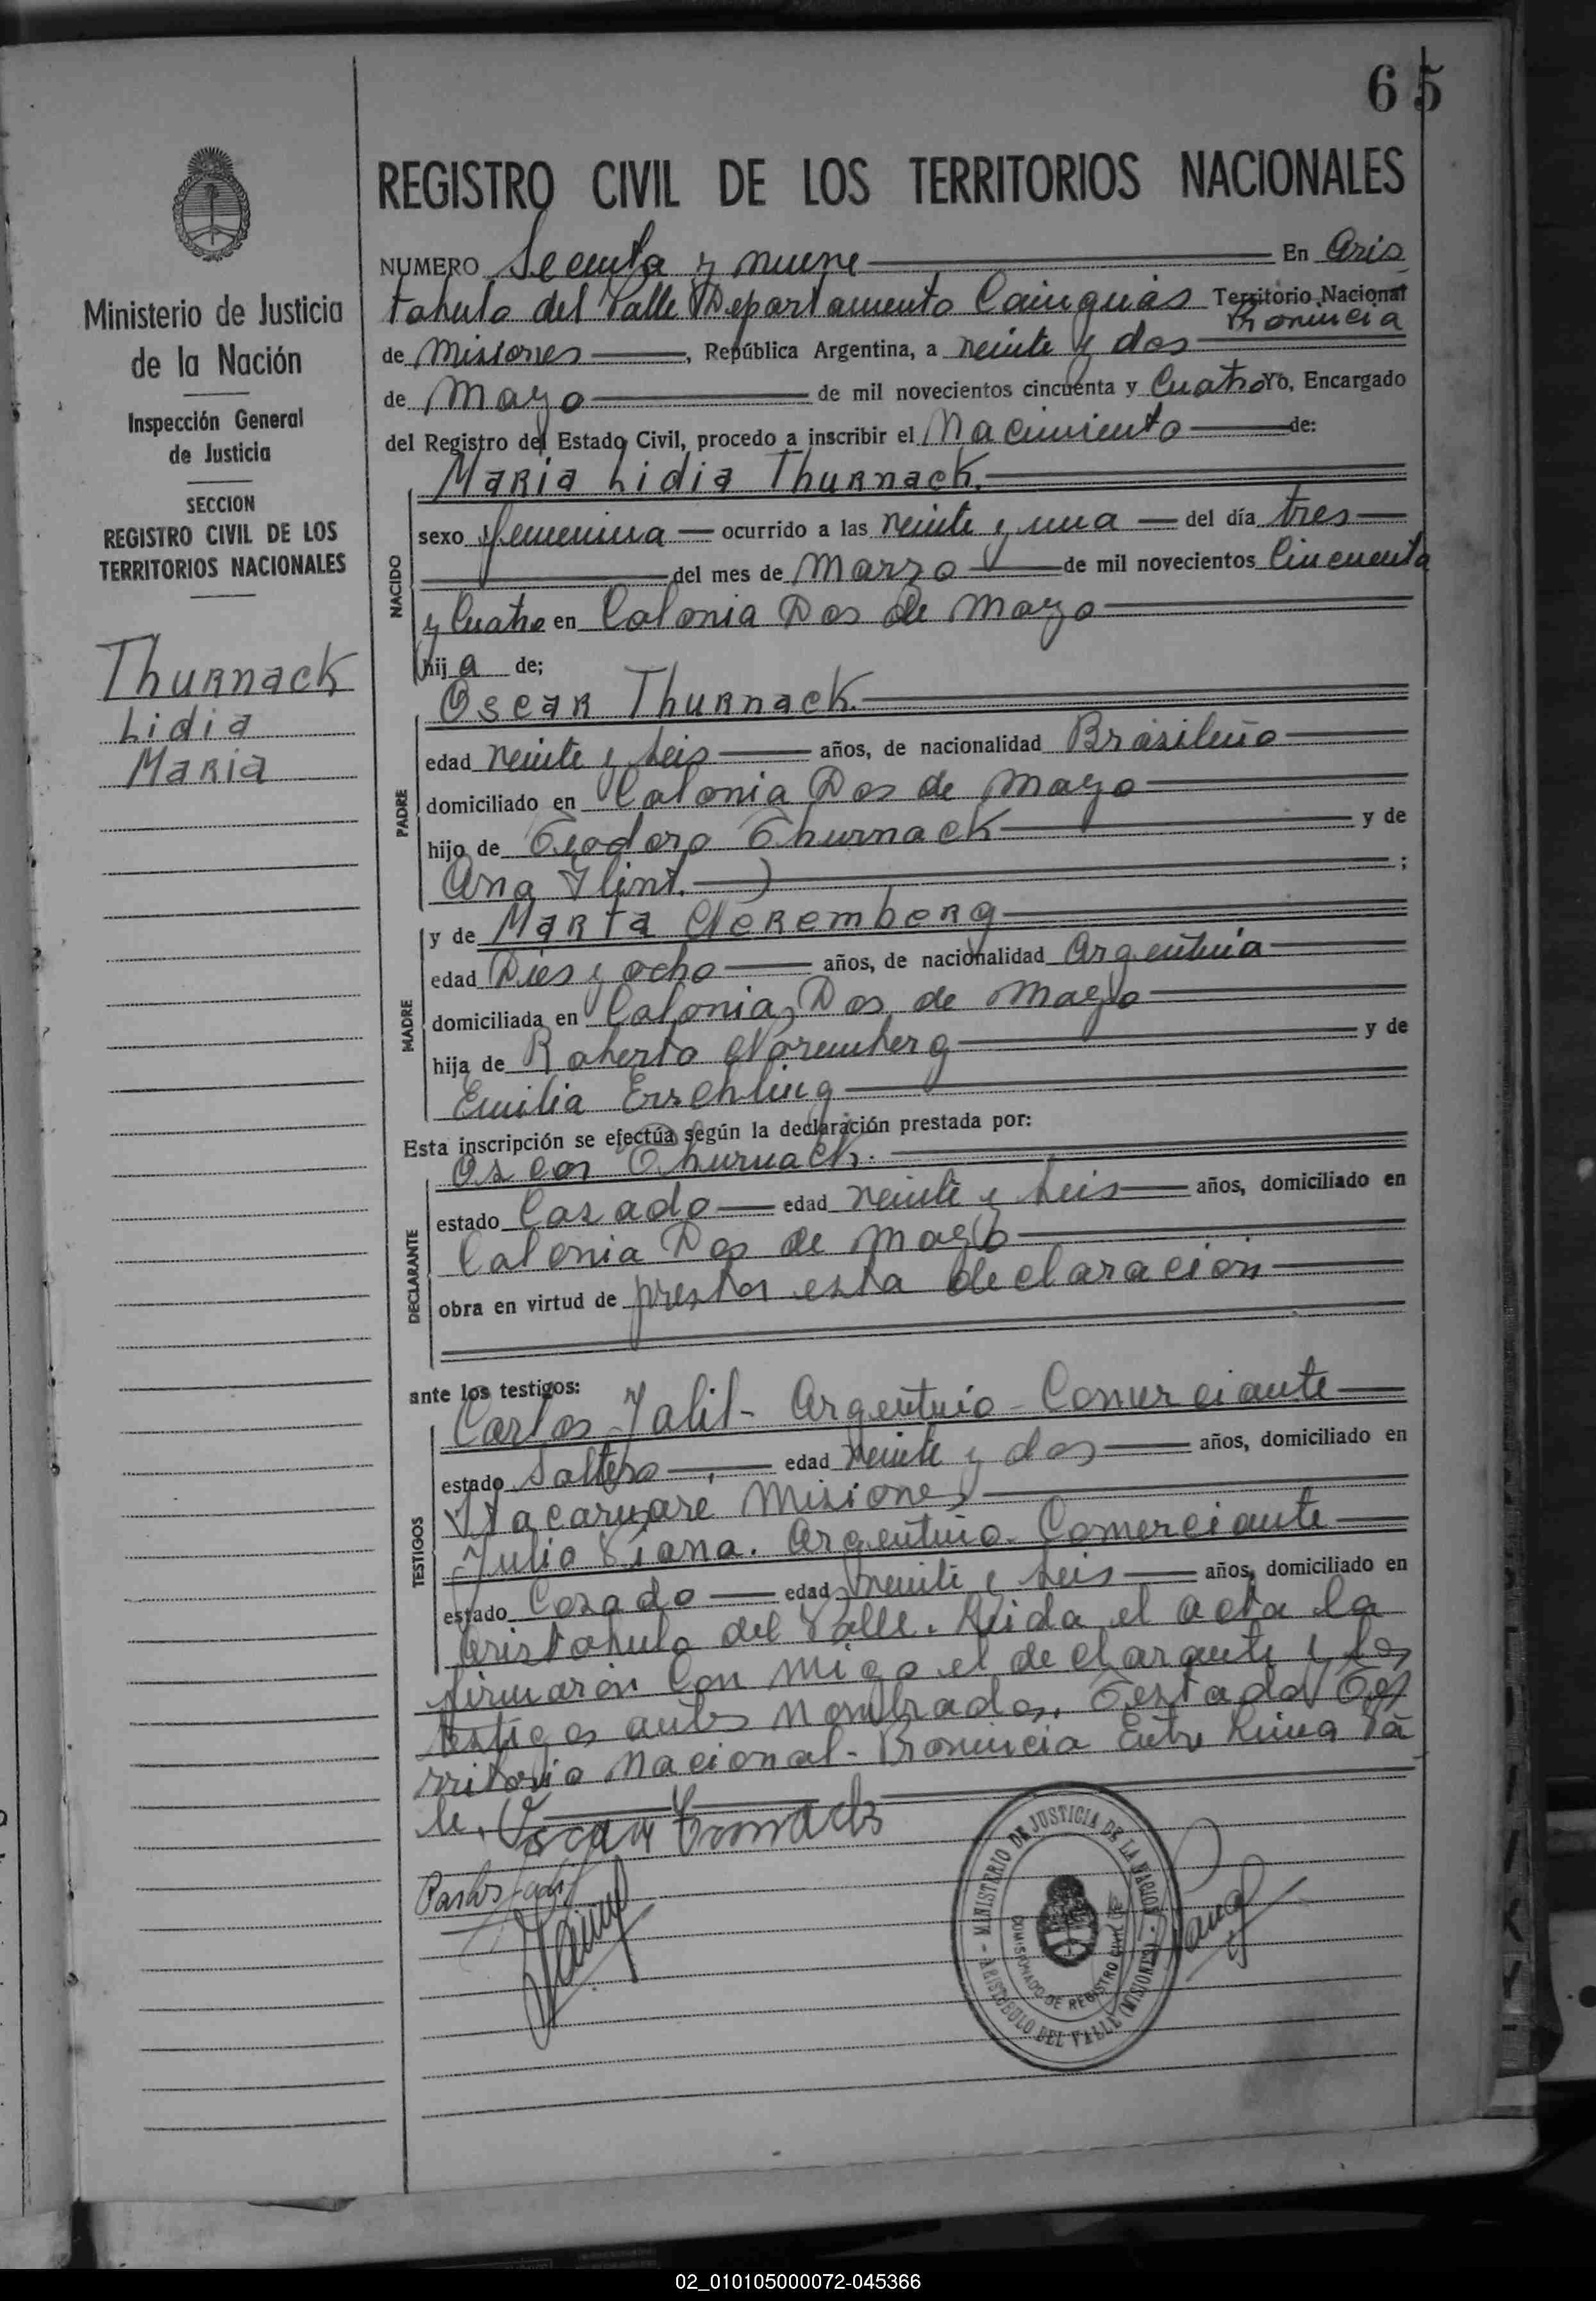 65
REGISTRO CIVIL DE LOS TERRITORIOS NACIONALES
NUMERO Secenta y nueve En Aris
tobulo del Valle Departamento Cainguas Territorio Nacional
Provincia
de Misiones, República Argentina, a veinte y dos
de Mayo de mil novecientos cincuenta y Cuatro Yo, Encargado
del Registro del Estado Civil, procedo a inscribir el Nacimiento de:
Ministerio de Justicia
de la Nación
Inspección General
de Justicia
SECCION
REGISTRO CIVIL DE LOS
TERRITORIOS NACIONALES
Thurnack
Lidia
Maria
NACIDO
Maria Lidia Thurnack.
sexo femenina ocurrido a las veinte y una del día tres
del mes de Marzo de mil novecientos Cincuenta
y Cuatro en Colonia Dos de Mayo
hij a de;
PADRE
Oscar Thurnack.
edad veinte y seis años, de nacionalidad Brasileño
domiciliado en Colonia Dos de Mayo
hijo de Teodoro Thurnack y de
Ana Flint. ;
MADRE
y de Marta Neremberg
edad Dies y ocho años, de nacionalidad Argentina
domiciliada en Colonia Dos de Mayo
hija de Roberto Noremberg y de
Emilia
Esta inscripción se efectúa según la declaración prestada por:
DECLARANTE
Oscar Thurnack.
estado Casado edad veinte y seis años, domiciliado en
Colonia Dos de Mayo
obra en virtud de prestar esta declaracion
ante los testigos:
TESTIGOS
Carlos Jalil - Argentino - Comerciante
estado Soltero, edad veinte y dos años, domiciliado en
Itacaruaré Misiones
Julio Viana. Argentino. Comerciante
estado Casado edad veinte y seis años, domiciliado en
Aristobulo del Valle. Leida el acta la
firmaron con migo el declarante y los
testigos antes nombrados. Testado Te
rritorio Nacional - Provincia Entre Linea Va
le.
Oscar
MINISTERIO DE JUSTICIA DE LA NACION
COMISIONADO DE REGISTRO CIVIL DE
ARISTOBULO DEL VALLE (MISIONES)
02_010105000072-045366